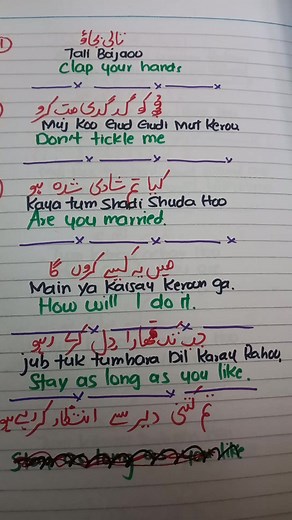 1
تالی بجاؤ
Tali Bajaoo
Clap your hands
مجھ کو گد گدی مت کرو
Muj Koo Gud Gudi Mut Kerou
Don't tickle me
کیا تم شادی شدہ ہو
Kaya tum Shadi Shuda Hoo
Are you married.
میں یہ کیسے کروں گا
Main ya Kaisay Keroun ga.
How will I do it.
جب تک تمھارا دل کرے رہو
jub tuk tumhara Dil Karay Rahou,
Stay as long as you like.
تم کتنی دیر سے انتظار کر رہے ہو
like